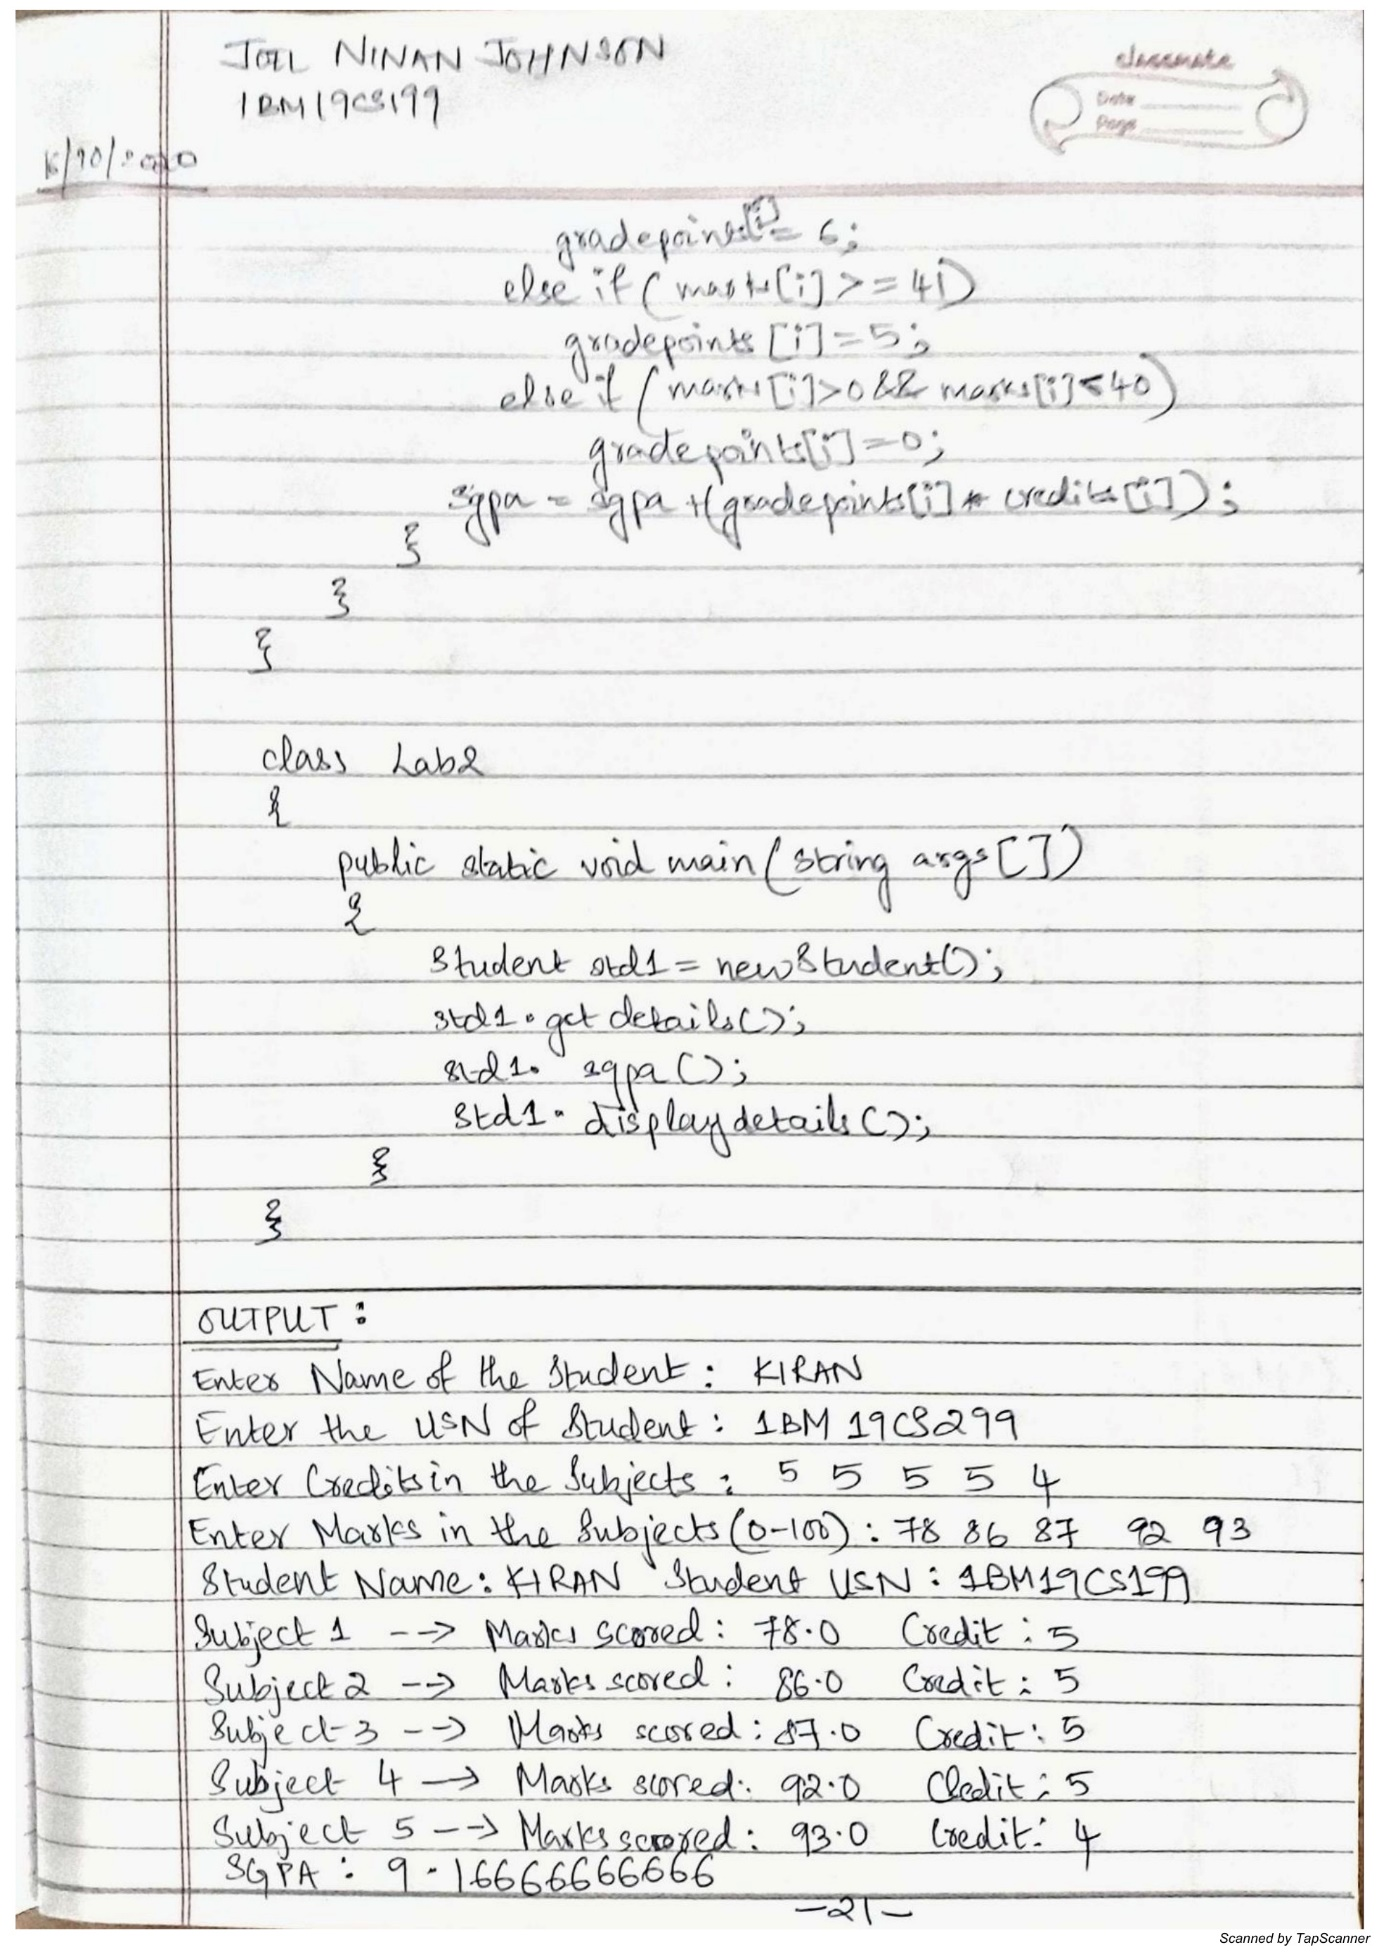 JOEL NINAN JOHNSON
1BM19CS199
classmate
Date
Page
16/10/2020
gradepoints[i] = 6;
else if (marks[i] >= 41)
gradepoints [i] = 5;
else if (marks[i]>0 && marks[i]<40)
gradepoints[i]=0;
sgpa = sgpa +(gradepoints[i] * credits[i]);
}
}
}
class Lab2
{
public static void main(string args[])
{
Student std1 = new Student();
std1.getdetails();
std1. sgpa();
std1. displaydetails();
}
}
OUTPUT :
Enter Name of the Student : KIRAN
Enter the USN of Student : 1BM 19CS299
Enter Credits in the Subjects : 5 5 5 5 4
Enter Marks in the Subjects (0-100) : 78 86 87 92 93
Student Name : KIRAN Student USN : 1BM19CS199
Subject 1 --> Marks scored : 78.0 Credit : 5
Subject 2 --> Marks scored : 86.0 Credit : 5
Subject 3 --> Marks scored : 87.0 Credit : 5
Subject 4 --> Marks scored : 92.0 Credit : 5
Subject 5 --> Marks scored : 93.0 Credit : 4
SGPA : 9.16666666666
-21-
Scanned by TapScanner